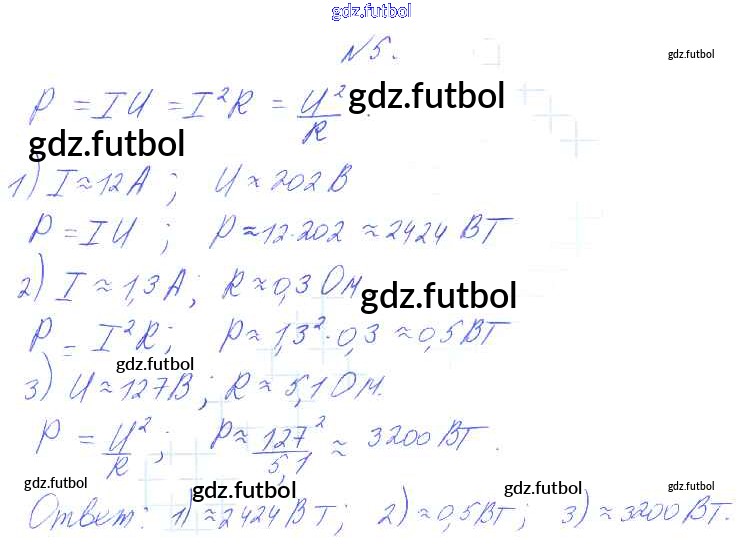 gdz.futbol
№ 5.
gdz.futbol
P = IU = I²R = U²/R.
gdz.futbol
gdz.futbol
1) I ≈ 12 А ; U ≈ 202 В
P = IU ; P ≈ 12·202 ≈ 2424 ВТ
2) I ≈ 1,3 А; R ≈ 0,3 Ом
gdz.futbol
P = I²R; P ≈ 1,3²·0,3 ≈ 0,5 ВТ
gdz.futbol
3) U ≈ 127 В; R ≈ 5,1 Ом.
P = U²/R; P ≈ 127²/5,1 ≈ 3200 ВТ.
gdz.futbol
gdz.futbol
gdz.futbol
gdz.futbol
Ответ: 1) ≈ 2424 В Т; 2) ≈ 0,5 ВТ; 3) ≈ 3200 ВТ.